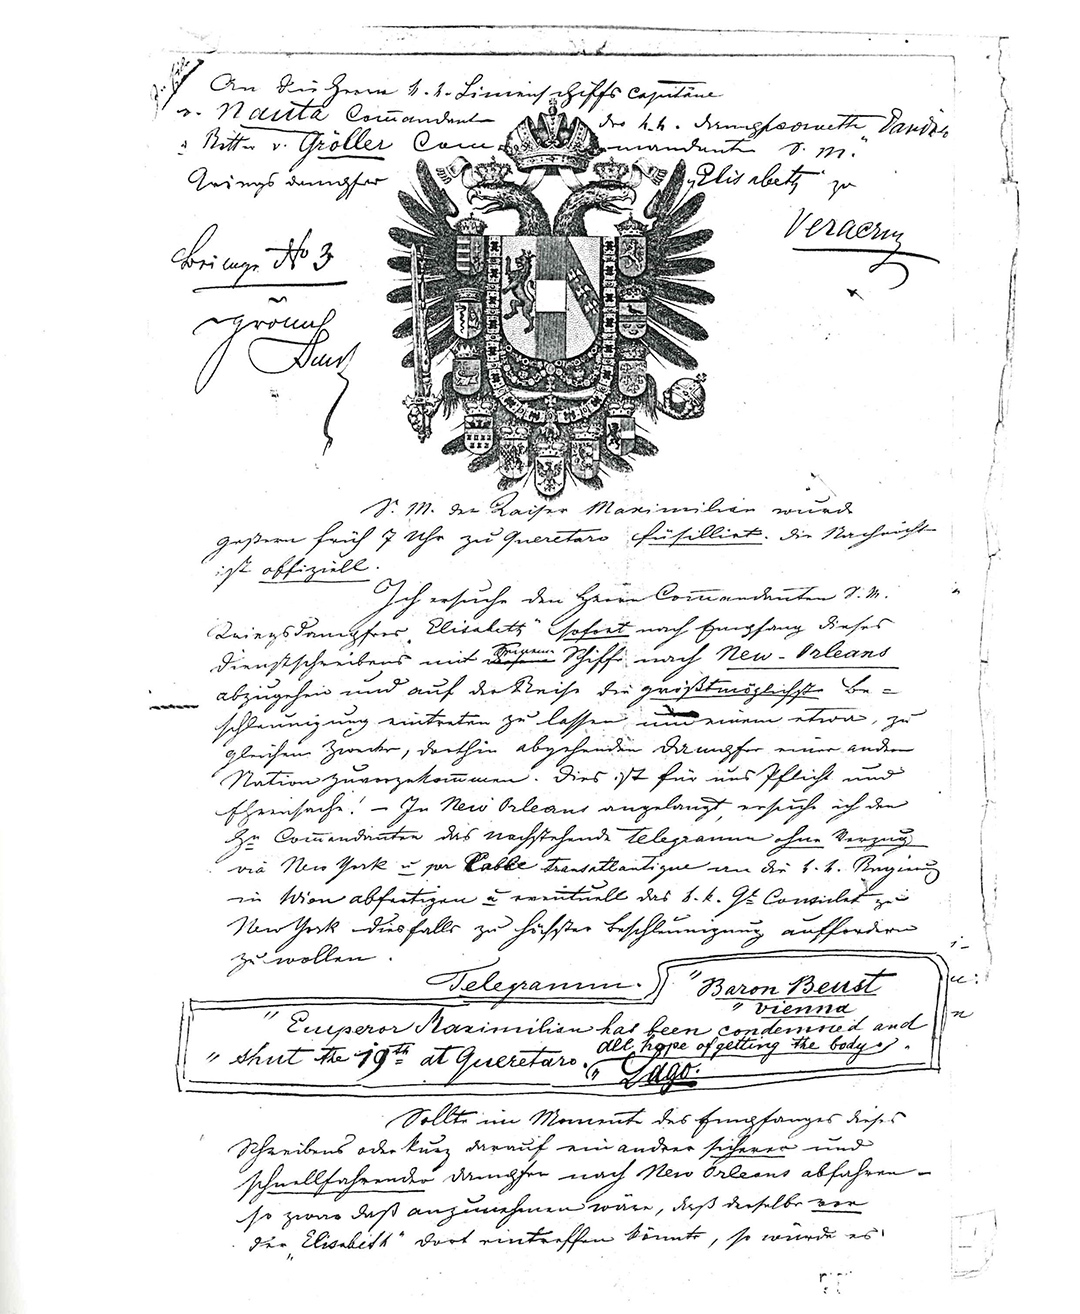 An die Herrn k. k. Linienschiffs Capitäne
v. Nauta Commandant des k. k. Dampfcorvette Dandolo
u. Ritter v. Gröller Commandant S. M.
Kriegsdampfer „Elisabeth" zu
Veracruz
Beilage No 3
Gröller
S. M. der Kaiser Maximilian wurde
gestern früh 7 Uhr zu Queretaro füsillirt. Die Nachricht
ist offiziell.
Ich ersuche den Herrn Commandanten S. M.
Kriegsdampfers „Elisabeth" sofort nach Empfang dieses
Dienstschreibens mit Seinem Schiffe nach New-Orleans
abzugehen und auf der Reise die größtmöglichste Be=
schleunigung eintreten zu lassen um einem etwa, zu
gleichem Zwecke, dorthin abgehenden Dampfer einer andern
Nation zuvorzukommen. Dies ist für uns Pflicht und
Ehrensache! – In New Orleans angelangt, ersuche ich den
Hn Commandanten das nachstehende Telegramm ohne Verzug
via New York u per Cable transatlantique an die k. k. Regierung
in Wien abfertigen u eventuell das k. k. Gl Consulat zu
New York diesfalls zu höchster Beschleunigung auffordern
zu wollen.
Telegramm.
"Baron Beust
"Vienna
"Emperor Maximilian has been condemned and
"shut the 19th at Queretaro. all hope of getting the body.
" Lago."
Sollte im Momente des Empfanges dieses
Schreibens oder kurz darauf ein andrer sicherer und
schnellfahrender Dampfer nach New Orleans abfahren –
so zwar daß anzunehmen wäre, daß derselbe vor
der „Elisabeth" dort eintreffen könnte, so würde es